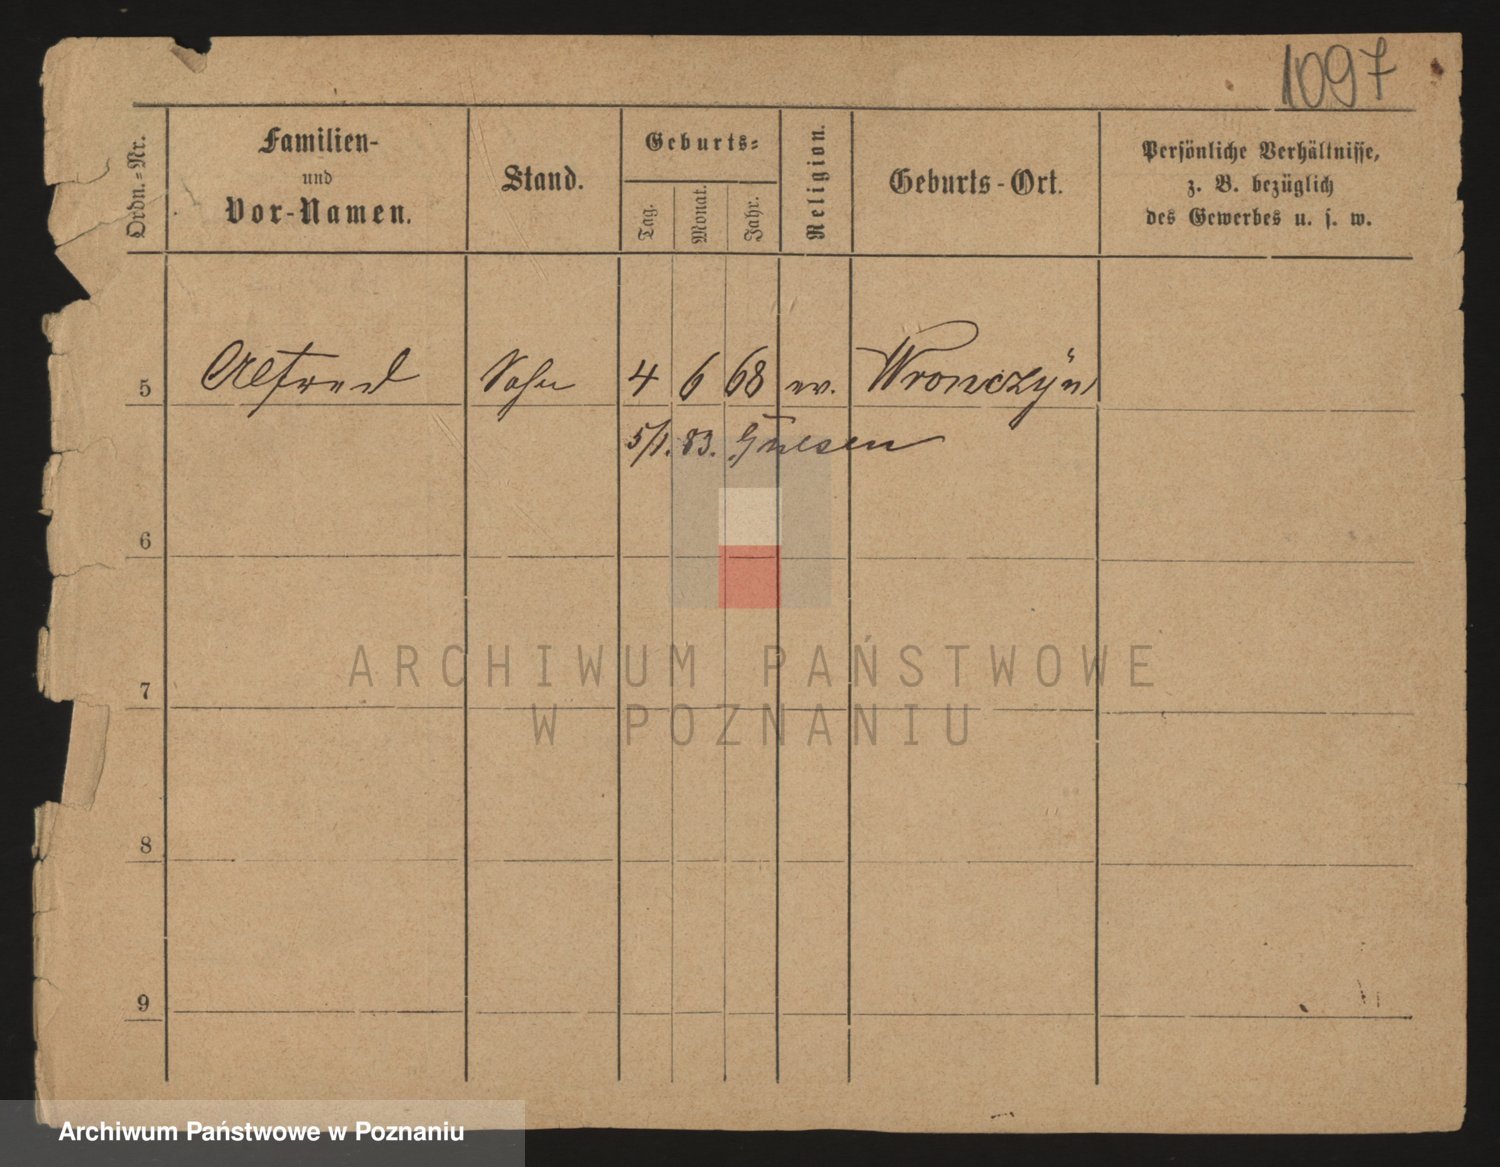 1097
Ordn.-Nr.
Familien-
und
Vor-Namen.
Stand.
Geburts-
Tag.
Monat.
Jahr.
Religion.
Geburts-Ort.
Persönliche Verhältnisse,
z. B. bezüglich
des Gewerbes u. s. w.
5 Alfred Sohn 4 6 68 ev. Wronczyn
5/1. 83. Gnesen
6
7
8
9
ARCHIWUM PAŃSTWOWE
W POZNANIU
Archiwum Państwowe w Poznaniu